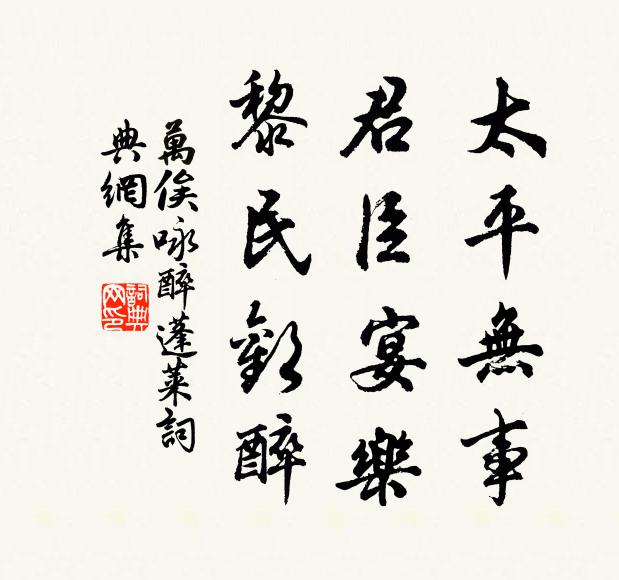 太平無事
君臣宴樂
黎民歡醉
萬俟咏醉蓬萊詞
典網集
詞典網印